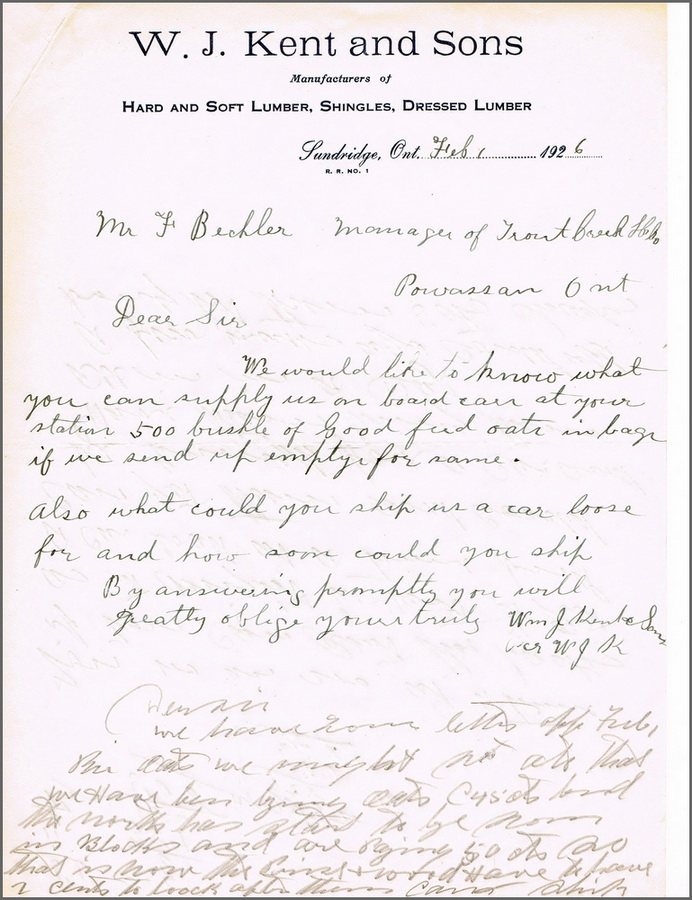 W. J. Kent and Sons
Manufacturers of
HARD AND SOFT LUMBER, SHINGLES, DRESSED LUMBER
Sundridge, Ont. Feb 1 1926
R. R. NO. 1
Mr F Bechler Manager of Trout Creek
Powassan Ont
Dear Sir
We would like to know what
you can supply us on board carr at your
station 500 bushle of Good feed oats in bags
if we send up emptys for same.
Also what could you ship us a car loose
for and how soon could you ship
By answering promptly you will
greatly oblige yours truly Wm J Kent & Sons
Per W J K
Dear Sir
we have your letter off Feb 1
the oats we might not all that
we Have ben bying oats
the north has start to
in Blocks and are 50 cts
that is now the wood Have to have
2 cents to look after them cant ship